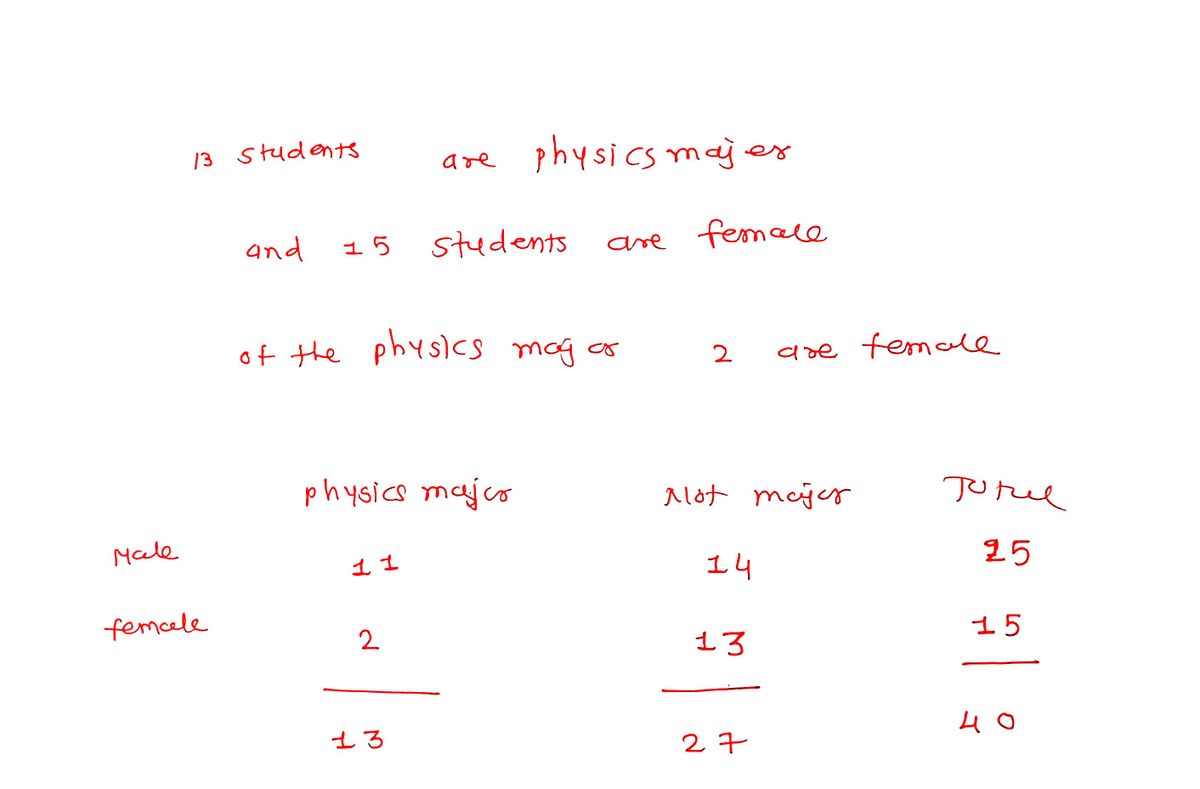 13 students are physics major
and 15 students are female
of the physics major 2 are female
physics major Not major Total
Male 11 14 25
female 2 13 15
13 27 40